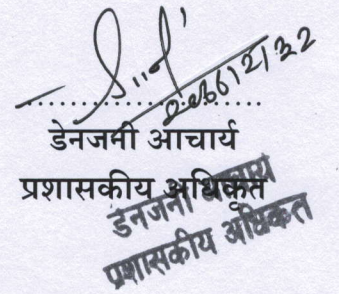 डेनजमी आचार्य
प्रशासकीय अधिकृत
डेनजमी आचार्य
प्रशासकीय अधिकृत